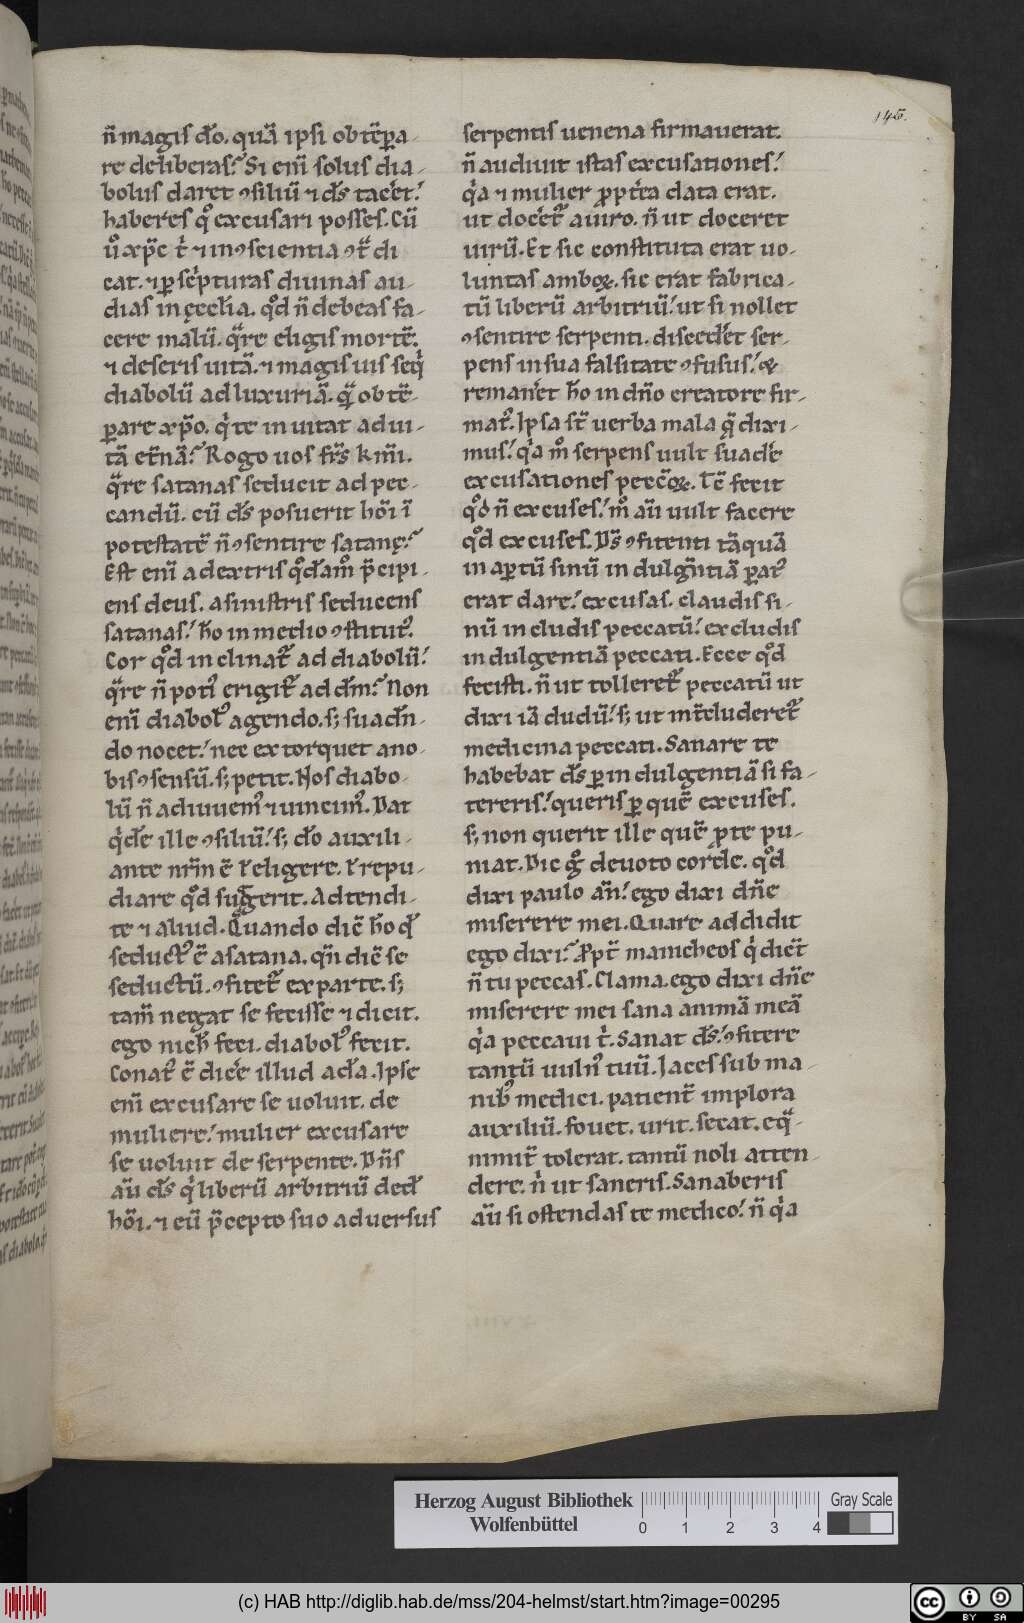 145.
n̄ magis d̄o. quā ipsi obtēꝑa-
re deliberas? Si eni̅ solus dia-
bolus daret ꝯsiliū ⁊ d̄s tac̄et!
haberes qͦ excusari posses. Cū
ů xp̄c t̍ ⁊ inꝯscientia ꝯt̄ di
cat. ⁊ ꝑ sc̍pturas diuinas au-
dias in ęcclīa. qͦd n̄ debeas fa-
cere malū. q̄re eligis mortē.
⁊ deseris uitā. ⁊ magis uis seq̍
diabolū ad luxuriā. q̄ obtē-
ꝑare xp̄o. q̍ te inuitat ad ui-
tā et̄nā? Rogo uos fr̄s k̄mi.
q̄re satanas seducit ad pec-
candū. cū d̄s posuerit hōi ī
potestatē n̄ ꝯsentire satanę?
Est eni̅ adextris qͦdāmͦ p̄cipi-
ens deus. asinistris seducens
satanas! h̄o in medio ꝯstitutꝰ.
Cor qͦd inclinat᷑ ad diabolū!
q̄re n̄ potꝰ erigit᷑ ad d̄m? Non
eni̅ diabolꝰ agendo. s; suad̄n-
do nocet! nec extorquet ano-
bis ꝯsensū. s; petit. Nos diabo-
lū n̄ adiuuemꝰ ⁊ uincimꝰ. Dat
q̍d̄e ille ꝯsiliū! s; d̄o auxili-
ante nr̄m ē ł eligere. ł repu-
diare qͦd suggerit. Adtendi-
te ⁊ aliud. Quando dic̄ h̄o qd̄
seductꝰ ē asatana. qn̄ dic̄ se
seductū. ꝯfitet᷑ ex parte. s;
tam̄ negat se fecisse ⁊ dicit.
ego nich̄ feci. diabolꝰ fecit.
Conatꝰ ē dic̄e illud ad̄a. Ipse
eni̅ excusare se uoluit. de
muliere! mulier excusare
se uoluit de serpente. Dn̄s
aū d̄s q̍ liberū arbitriū ded̄
hōi. ⁊ eū p̄cepto suo aduersus
serpentis uenena firmauerat.
n̄ audiuit istas excusationes!
q̍a ⁊ mulier ꝓpt̄ea data erat.
ut doc̄et᷑ auiro. n̄ ut doceret
uirū. Et sic constituta erat uo-
luntas amboꝝ. sic erat fabrica-
tū liberū arbitriū! ut si nollet
ꝯsentire serpenti. disced̄et ser-
pens in sua falsitate ꝯfusus! &
reman̄et h̄o in dn̄o creatore fir-
matꝰ. Ipsa st̄ uerba mala q̄ dixi-
mus! q̍a mͦ serpens uult suad̄e
excusationes pecc̄oꝝ. Tē fecit
qͦd n̄ excuses! mͦ aū uult facere
qͦd excuses. D̄s ꝯfitenti tāquā
in aꝑtū sinū indulḡntiā ꝑatꝰ
erat dare! excusas. claudis si-
nū includis peccatū! excludis
indulgentiā peccati. Ecce qͦd
fecisti. n̄ ut tolleret᷑ peccatū ut
dixi iā dudū! s; ut int̄cluderet᷑
medicina peccati. Sanare te
habebat d̄s ꝑ indulgentiā si fa-
tereris! queris ꝑ quē excuses.
s; non querit ille quē ꝓ te pu-
niat. Dic gͦ deuoto corde. qͦd
dixi paulo an̄! ego dixi dn̄e
miserere mei. Quare addidit
ego dixi? Ꝓpt̄ manicheos q̍ dic̄t
n̄ tu peccas. Clama. ego dixi dn̄e
miserere mei sana animā meā
q̍a peccaui t̍. Sanat d̄s! ꝯfitere
tantū uulnꝰ tuū. Iaces sub ma-
nibꝰ medici. patient᷑ implora
auxiliū. fouet. urit. secat. eq̄-
nimit̄ tolerat. tantū noli atten-
dere. n̍ ut saneris. Sanaberis
aū si ostendas te medico! n̄ q̍a
Herzog August Bibliothek
Wolfenbüttel
0 1 2 3 4
Gray Scale
(c) HAB http://diglib.hab.de/mss/204-helmst/start.htm?image=00295
cc BY SA